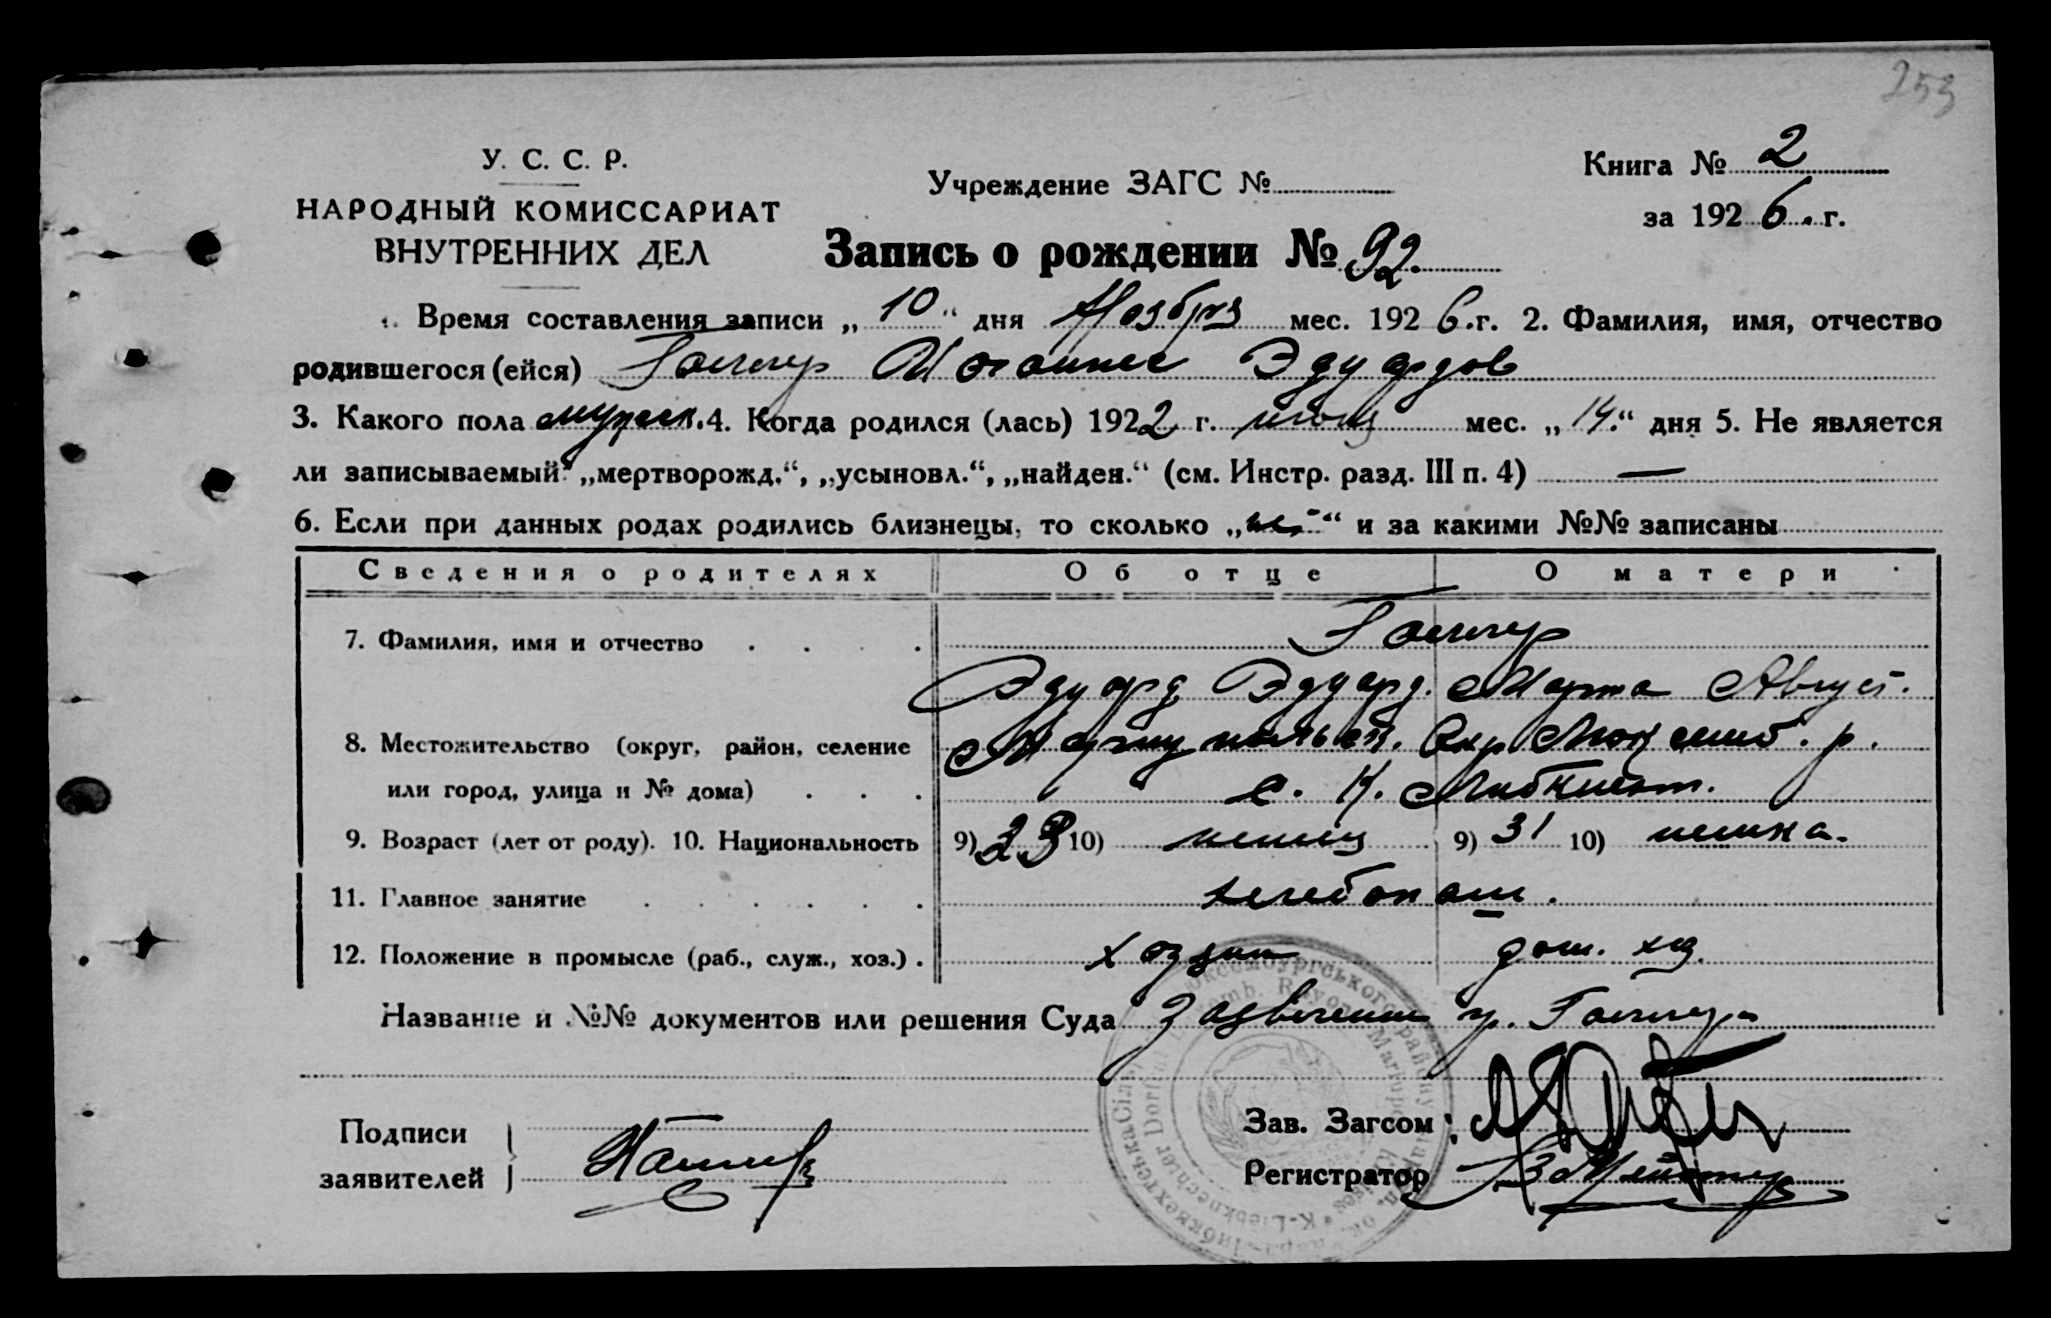 253
У. С. С. Р.
НАРОДНЫЙ КОМИССАРИАТ
ВНУТРЕННИХ ДЕЛ
Учреждение ЗАГС №
Книга № 2
за 1926. г.
Запись о рождении № 92.
1. Время составления записи „10“ дня Ноября мес. 1926.г. 2. Фамилия, имя, отчество
родившегося (ейся) Эдуардов
3. Какого пола мужск. 4. Когда родился (лась) 1922 г. мес. „14.“ дня 5. Не является
ли записываемый „мертворожд.“, „усыновл.“, „найден.“ (см. Инстр. разд. III п. 4) —
6. Если при данных родах родились близнецы, то сколько „ “ и за какими №№ записаны
Сведения о родителях Об отце О матери
7. Фамилия, имя и отчество
Эдуард Эдуард. Марта Август.
8. Местожительство (округ, район, селение Мариупольск. Окр. Люксемб. р.
или город, улица и № дома) с. К. Либкнехт.
9. Возраст (лет от роду). 10. Национальность 9) 23 10) немец 9) 31 10) немка.
11. Главное занятие хлебопаш.
12. Положение в промысле (раб., служ., хоз.) хозяин дом. хоз.
Название и №№ документов или решения Суда Заявление гр.
Подписи
заявителей
Зав. Загсом
Регистратор